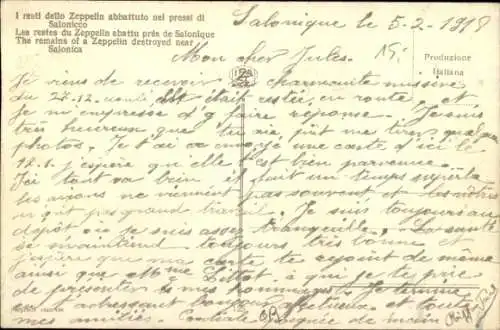 I resti dello Zeppelin abbattuto nei pressi di
Salonicco
Les restes du Zeppelin abattu près de Salonique
The remains of a Zeppelin destroyed near
Salonica
Produzione
Italiana
Salonique le 5-2-1918
Mon cher Jules.
Je viens de recevoir charmante missive
du 27-12 était restée en route, et
Je m'empresse d'y faire réponse. Je suis
très heureux que tu aie pu me tirer quelques
photos. Je t'ai envoyé une carte d'ici le
12.1 j'espère qu'elle t'est bien parvenue.
Ici tout va bien il fait un temps superbe
les avions ne viennent pas souvent et les nôtres
n'ont pas grand travail. Je suis toujours au
dépôt où je suis assez tranquille. La santé
se maintient toujours très bonne et
j'espère que ma carte te rejoint de même
ainsi que Mme à qui je te prie
de présenter mes hommages. Je termine
t'adressant bonjour affectueux et toutes
mes amitiés Cordiale poignée de main